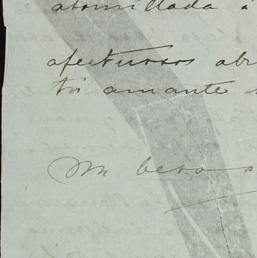 atornillada á
afectuosos abr
tu amante
Un beso a